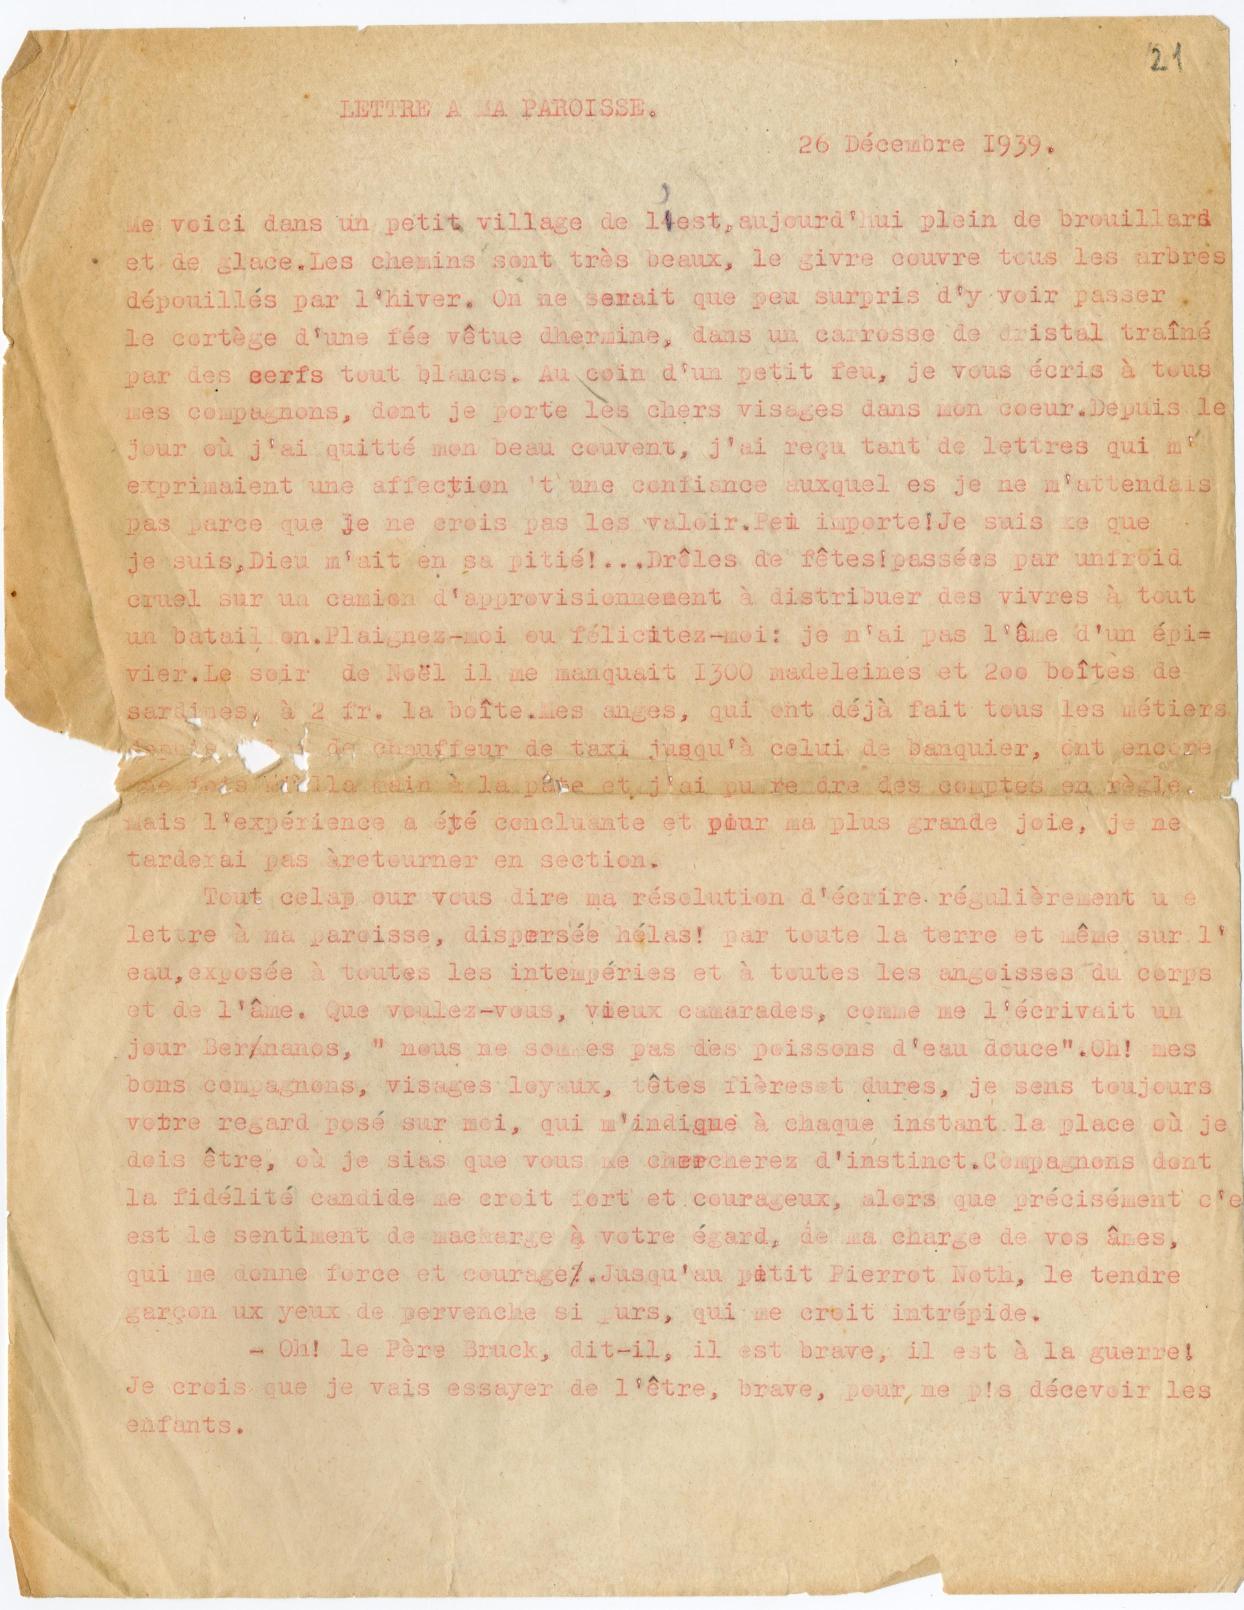 21
LETTRE A MA PAROISSE.
26 Décembre 1939.
Me voici dans un petit village de l'est,aujourd'hui plein de brouillard
et de glace.Les chemins sont très beaux, le givre couvre tous les arbres
dépouillés par l'hiver. On ne serait que peu surpris d'y voir passer
le cortège d'une fée vêtue dhermine, dans un carrosse de dristal traîné
par des cerfs tout blancs. Au coin d'un petit feu, je vous écris à tous
mes compagnons, dont je porte les chers visages dans mon coeur.Depuis le
jour où j'ai quitté mon beau couvent, j'ai reçu tant de lettres qui m'
exprimaient une affection 't une confiance auxquel es je ne m'attendais
pas parce que je ne crois pas les valoir.Peu importe!Je suis ce que
je suis,Dieu m'ait en sa pitié!...Drôles de fêtes!passées par unfroid
cruel sur un camion d'approvisionnement à distribuer des vivres à tout
un batail on.Plaignez-moi ou félicitez-moi: je n'ai pas l'âme d'un épi=
vier.Le soir de Noël il me manquait I300 madeleines et 200 boîtes de
sardines, à 2 fr. la boîte.Mes anges, qui ont déjà fait tous les métiers
depuis de chauffeur de taxi jusqu'à celui de banquier, ont encore
fois la main à la pâte et j'ai pu re dre des comptes en règle.
mais l'expérience a été concluante et pour ma plus grande joie, je ne
tarderai pas àretourner en section.
Tout celap our vous dire ma résolution d'écrire régulièrement u e
lettre à ma paroisse, dispersée hélas! par toute la terre et même sur l'
eau,exposée à toutes les intempéries et à toutes les angoisses du corps
et de l'âme. Que voulez-vous, vieux camarades, comme me l'écrivait un
jour Ber/nanos, " nous ne sommes pas des poissons d'eau douce".Oh! mes
bons compagnons, visages loyaux, têtes fièreset dures, je sens toujours
votre regard posé sur moi, qui m'indique à chaque instant la place où je
dois être, où je sias que vous me chercherez d'instinct.Compagnons dont
la fidélité candide me croit fort et courageux, alors que précisément c'e
est le sentiment de macharge à votre égard, de ma charge de vos âmes,
qui me donne force et courage/.Jusqu'au petit Pierrot Noth, le tendre
garçon ux yeux de pervenche si purs, qui me croit intrépide.
- Oh! le Père Bruck, dit-il, il est brave, il est à la guerre!
Je crois que je vais essayer de l'être, brave, pour ne p!s décevoir les
enfants.